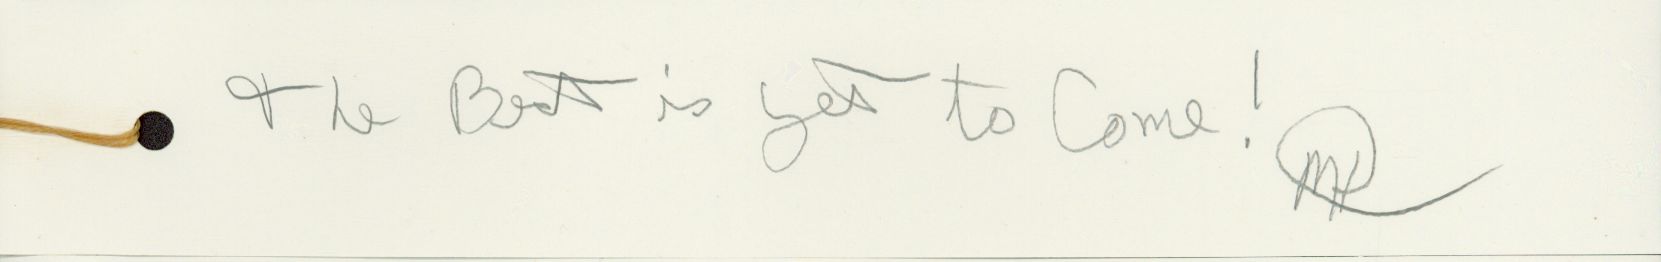 The Best is yet to Come!